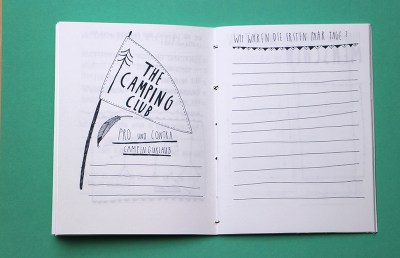 THE
CAMPING
CLUB
PRO UND CONTRA
CAMPINGURLAUB
WIE WAREN DIE ERSTEN PAAR TAGE?